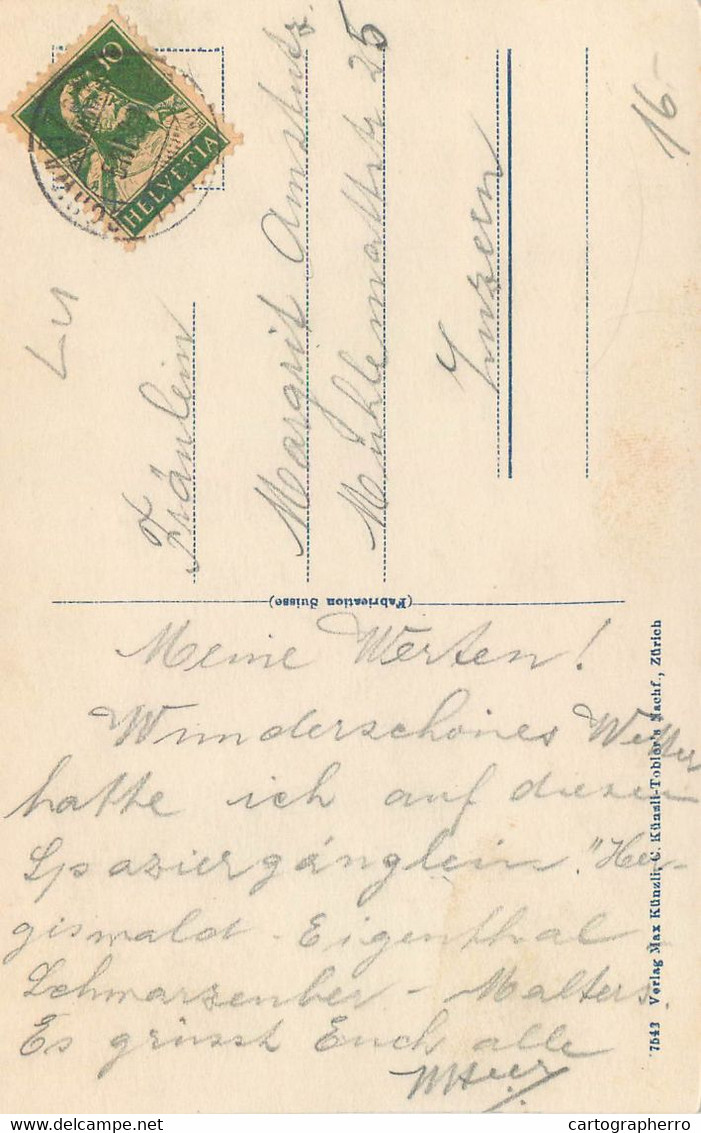 10
HELVETIA
16-
LU
Fräulein
Margrit Amstutz
Mühlemattstr 25
Luzern
(Fabrication Suisse)
7543 Verlag Max Künzli, C. Künzli-Tobler's Nachf., Zürich
Meine Werten!
Wunderschönes Wetter
hatte ich auf diesem
Spaziergänglein. "Her-
giswald - Eigenthal
Schwarzenber - Malters.
Es grüsst Euch alle
cartographerro